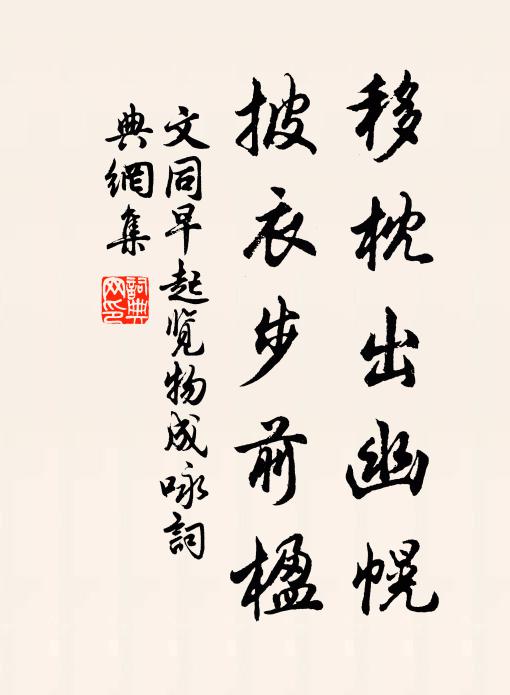 移枕出幽幌
披衣步前楹
文同早起覽物成咏詞
典網集
詞典
网印